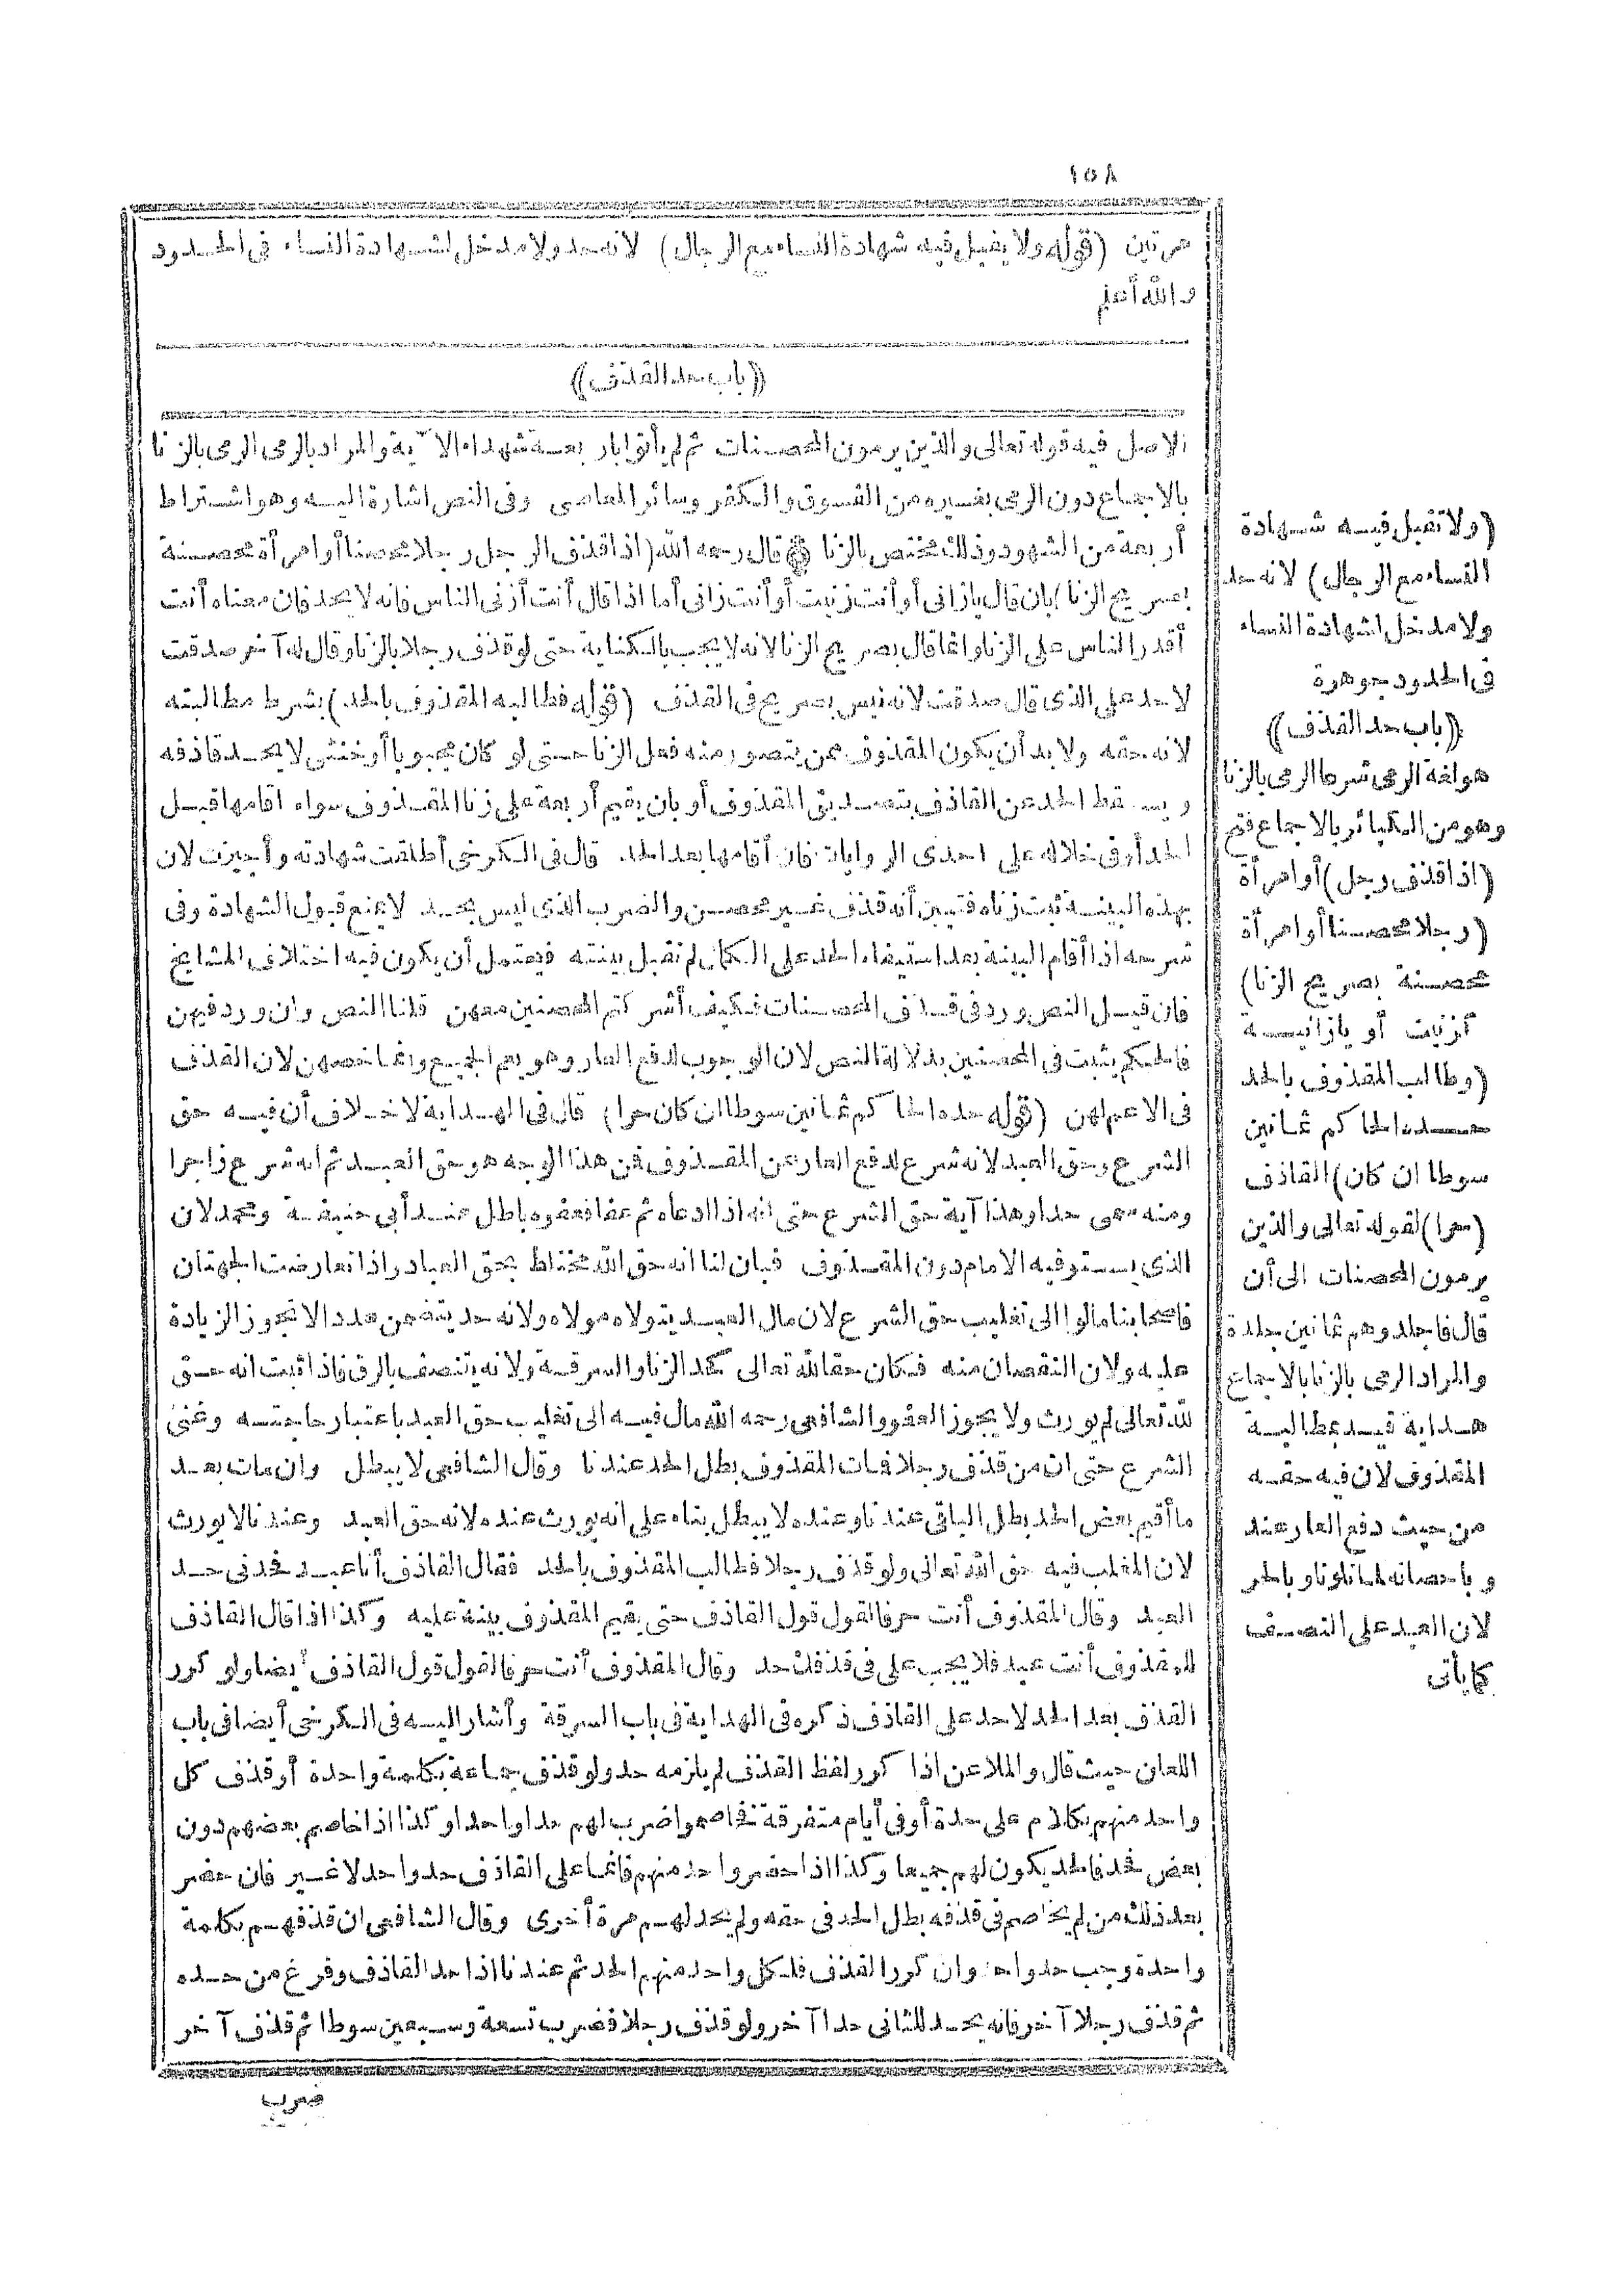 ١٥٨
مرتين (قوله ولا يقبل فيه شهادة النساء مع الرجال) لانه حد ولا مدخل لشهادة النساء فى الحدود
والله أعلم
((باب حد القذف))
الاصل فيه قوله تعالى والذين يرمون المحصنات ثم لم يأتوا بار بعة شهداء الآية والمراد بالرمى الرمى بالزنا
بالاجماع دون الرمى بغيره من الفسوق والكفر وسائر المعاصى وفى النص اشارة اليه وهو اشتراط
أربعة من الشهود وذلك مختص بالزنا قال رحمه الله (اذا قذف الرجل رجلا محصنا أو امرأة محصنة
بصريح الزنا) بان قال يازانى أو أنت زنيت أو أنت زانى أما اذا قال أنت أزنى الناس فانه لا يحد فان معناه أنت
أقدر الناس على الزنا وانما قال بصريح الزنا لانه لا يجب بالكناية حتى لو قذف رجلا بالزنا وقال له آخر صدقت
لا حد على الذى قال صدقت لانه ليس بصريح فى القذف (قوله فطالبه المقذوف بالحد) بشرط مطالبته
لانه حقه ولا بد أن يكون المقذوف ممن يتصور منه فعل الزنا حتى لو كان مجبوبا أو خنثى لا يحد قاذفه
ويسقط الحد عن القاذف بتصديق المقذوف أو بان يقيم أربعة على زنا المقذوف سواء اقامها قبل
الحد أو فى خلاله على احدى الروايات فان أقامها بعد الحد قال فى الكرخى أطلقت شهادته وأجيزت لان
بهذه البينة ثبت زناه فتبين أنه قذف غير محصن والضرب الذى ليس بحد لا يمنع قبول الشهادة وفى
شرحه اذا أقام البينة بعد استيفاء الحد على الكمال لم تقبل بينته فيحتمل أن يكون فيه اختلاف المشايخ
فان قيل النص ورد فى قذف المحصنات فكيف أشركتم المحصنين معهن قلنا النص وان ورد فيهن
فالحكم يثبت فى المحصنين بدلالة النص لان الوجوب لدفع العار وهو يعم الجميع وانما خصهن لان القذف
فى الاعم لهن (قوله حده الحاكم ثمانين سوطا ان كان حرا) قال فى الهداية لا خلاف أن فيه حق
الشرع وحق العبد لانه شرع لدفع العار عن المقذوف فمن هذا الوجه هو حق العبد ثم انه شرع زاجرا
ومنه سمى حدا وهذا آية حق الشرع حتى انه اذا ادعاه ثم عفا فعفوه باطل عند أبى حنيفة ومحمد لان
الذى يستوفيه الامام دون المقذوف فبان لنا انه حق الله مختلط بحق العباد واذا تعارضت الجهتان
فاصحابنا مالوا الى تغليب حق الشرع لان مال العبد يتولاه مولاه ولانه حد يتضمن عددا لا تجوز الزيادة
عليه ولان النقصان منه فكان حقا لله تعالى كحد الزنا والسرقة ولانه يتنصف بالرق فاذا ثبت انه حق
لله تعالى لم يورث ولا يجوز العفو والشافعى رحمه الله مال فيه الى تغليب حق العبد باعتبار حاجته وغنى
الشرع حتى ان من قذف رجلا فمات المقذوف بطل الحد عندنا وقال الشافعى لا يبطل وان مات بعد
ما أقيم بعض الحد بطل الباقى عندنا وعنده لا يبطل بناء على انه يورث عنده لانه حق العبد وعندنا لا يورث
لان المغلب فيه حق الله تعالى ولو قذف رجلا فطالب المقذوف بالحد فقال القاذف أنا عبد فحدنى حد
العبد وقال المقذوف أنت حر فالقول قول القاذف حتى يقيم المقذوف بينة عليه وكذا اذا قال القاذف
للمقذوف أنت عبد فلا يجب على فى قذفك حد وقال المقذوف أنت حر فالقول قول القاذف أيضا ولو كرر
القذف بعد الحد لا حد على القاذف ذكره فى الهداية فى باب السرقة وأشار اليه فى الكرخى أيضا فى باب
اللعان حيث قال والملاعن اذا كرر لفظ القذف لم يلزمه حد ولو قذف جماعة بكلمة واحدة أو قذف كل
واحد منهم بكلام على حدة أو فى أيام متفرقة فخاصموا ضرب لهم حدا واحدا وكذا اذا خاصم بعضهم دون
بعض فحد فالحد يكون لهم جميعا وكذا اذا حضر واحد منهم فانما على القاذف حد واحد لا غير فان حضر
بعد ذلك من لم يخاصم فى قذفه بطل الحد فى حقه ولم يحد لهم مرة أخرى وقال الشافعى ان قذفهم بكلمة
واحدة وجب حد واحد وان كرر القذف فلكل واحد منهم الحد ثم عندنا اذا حد القاذف وفرغ من حده
ثم قذف رجلا آخر فانه يحد للثانى حدا آخر ولو قذف رجلا فضرب تسعة وسبعين سوطا ثم قذف آخر
ضرب
(ولا تقبل فيه شهادة
النساء مع الرجال) لانه حد
ولا مدخل لشهادة النساء
فى الحدود جوهرة
((باب حد القذف))
هو لغة الرمى شرعا الرمى بالزنا
وهو من الكبائر بالاجماع فتح
(اذا قذف رجل) أو امرأة
(رجلا محصنا أو امرأة
محصنة بصريح الزنا)
أزنيت أو يازانية
(وطالب المقذوف بالحد
حده الحاكم ثمانين
سوطا ان كان) القاذف
(حرا) لقوله تعالى والذين
يرمون المحصنات الى أن
قال فاجلدوهم ثمانين جلدة
والمراد الرمى بالزنا بالاجماع
هداية قيد بمطالبة
المقذوف لان فيه حقه
من حيث دفع العار عنه
وباحصانه لما تلونا وبالحر
لان العبد على النصف
كما يأتى